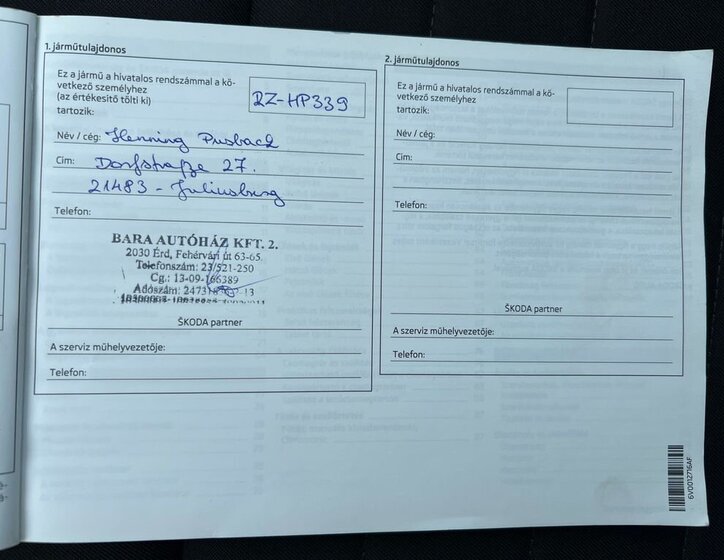 1. járműtulajdonos
Ez a jármű a hivatalos rendszámmal a kö-
vetkező személyhez
(az értékesítő tölti ki)
tartozik:
RZ-HP339
Név / cég: Henning Pusback
Cím: Dorfstraße 27.
21483 - Juliusburg
Telefon:
BARA AUTÓHÁZ KFT. 2.
2030 Érd, Fehérvári út 63-65.
Telefonszám: 23/521-250
Cg.: 13-09-166389
Adószám: 13
ŠKODA partner
A szerviz műhelyvezetője:
Telefon:
2. járműtulajdonos
Ez a jármű a hivatalos rendszámmal a kö-
vetkező személyhez
tartozik:
Név / cég:
Cím:
Telefon:
ŠKODA partner
A szerviz műhelyvezetője:
Telefon:
6V0012716AF